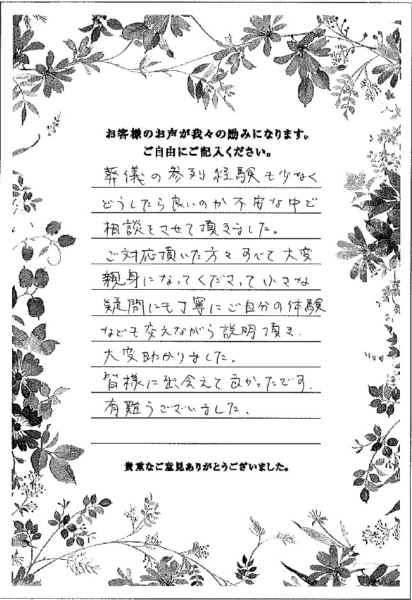 お客様のお声が我々の励みになります。
ご自由にご記入ください。
葬儀の参列経験も少なく
どうしたら良いのか不安な中で
相談をさせて頂きました。
ご対応頂いた方々すべて大変
親身になってくださって小さな
疑問にも丁寧にご自分の体験
なども交えながら説明頂き、
大変助かりました。
皆様に出会えて良かったです。
有難うございました。
貴重なご意見ありがとうございました。